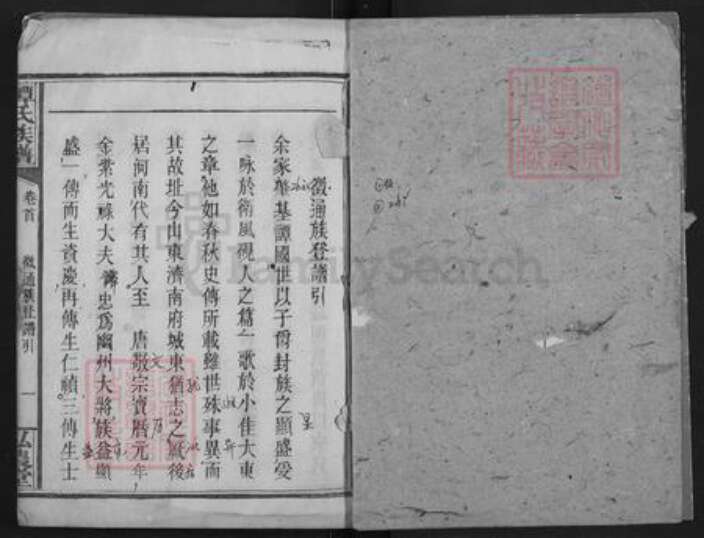 徵通族登譜引
余家肇基譚國世以子爵封族之顯盛爰
一咏於衛風硯人之篇一歌於小佳大東
之章他如春秋史傳所載雖世殊事異而
其故址今山東濟南府城東猶志之厥後
居河南代有其人至 唐敬宗寶曆元年
金紫光祿大夫 忠爲幽州大將族益顯
盛一傳而生資慶再傳生仁禎三傳生士
譚氏族譜
卷首
徵通族登譜引
一
弘農堂
FamilySearch